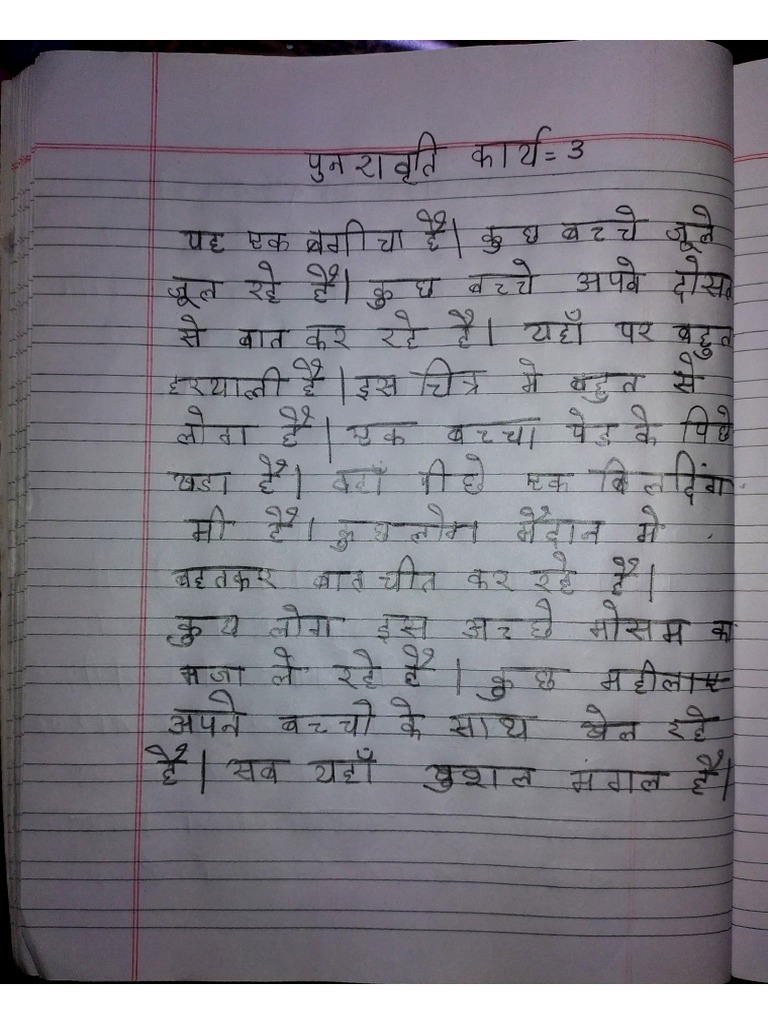 पुनरावृति कार्य = 3
यह एक बगीचा है। कुछ बच्चे झूले
झूल रहे हैं। कुछ बच्चे अपने दोस्त
से बात कर रहे है। यहाँ पर बहुत
हरयाली है। इस चित्र मे बहुत से
लोग है। एक बच्चा पेड के पिछे
खडा है। वहाँ पीछे एक बिलदिंग
भी है। कुछ लोग मैदान मे
बहतकर बातचीत कर रहे है।
कुछ लोग इस अच्छे मोसम का
मजा ले रहे है। कुछ महीलाए
अपने बच्चो के साथ खेल रहे
है। सब यहाँ खुशल मंगल है।